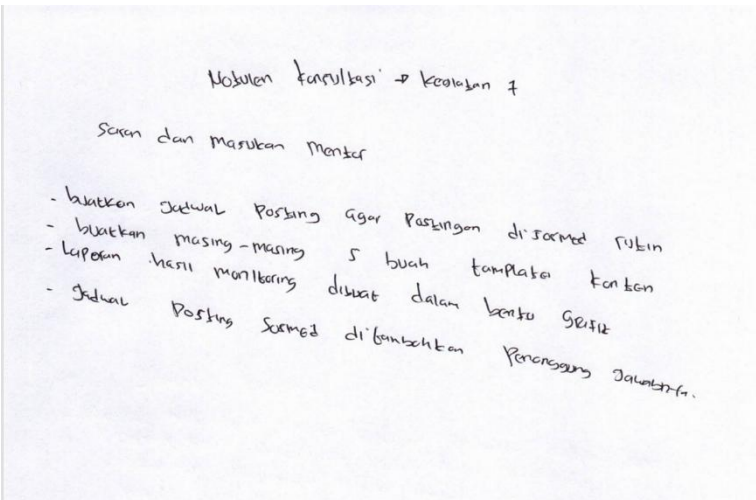 Notulen konsultasi → kegiatan 7
Saran dan masukan mentor
- buatkan Jadwal Posting agar Postingan disosmed rutin
- buatkan masing-masing 5 buah tamplate konten
- Laporan hasil monitoring dibuat dalam bentu grafik
- Jadwal Posting Sosmed ditambahkan Penanggung Jawabnya.